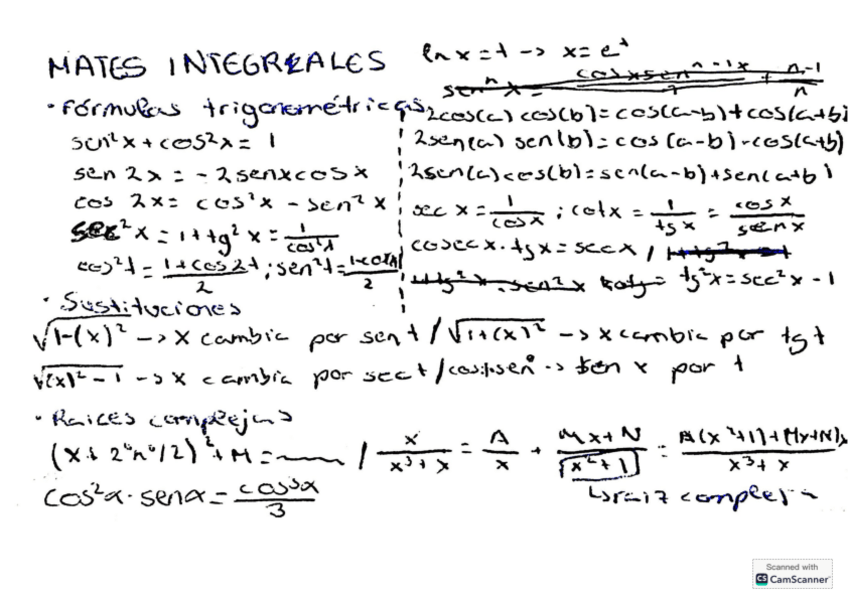 MATES INTEGRALES
ln x = t -> x = e^t
· Fórmulas trigonométricas
sen²x + cos²x = 1
sen 2x = -2senxcosx
cos 2x = cos²x - sen²x
sec²x = 1 + tg²x = 1/cos²x
cos²t = (1+cos2t)/2 ; sen²t =
2cos(a) cos(b) = cos(a-b) + cos(a+b)
2sen(a) sen(b) = cos(a-b) - cos(a+b)
2sen(a) cos(b) = sen(a-b) + sen(a+b)
sec x = 1/cosx ; cotx = 1/tgx = cosx/senx
cosecx · tgx = secx /
tg²x = sec²x - 1
· Sustituciones
√(1-(x)²) -> x cambia por sen t / √(1+(x)²) -> x cambia por tg t
√((x)²-1) -> x cambia por sec t / -> sen x por t
· Raices complejas
(x± 2ºnº/2)² + M = / x/(x³+x) = A/x + (Mx+N)/(x²+1) = (A(x²+1)+(Mx+N)x)/(x³+x)
↳ raiz compleja
cos²α · senα = cos³α/3
Scanned with
CS CamScanner